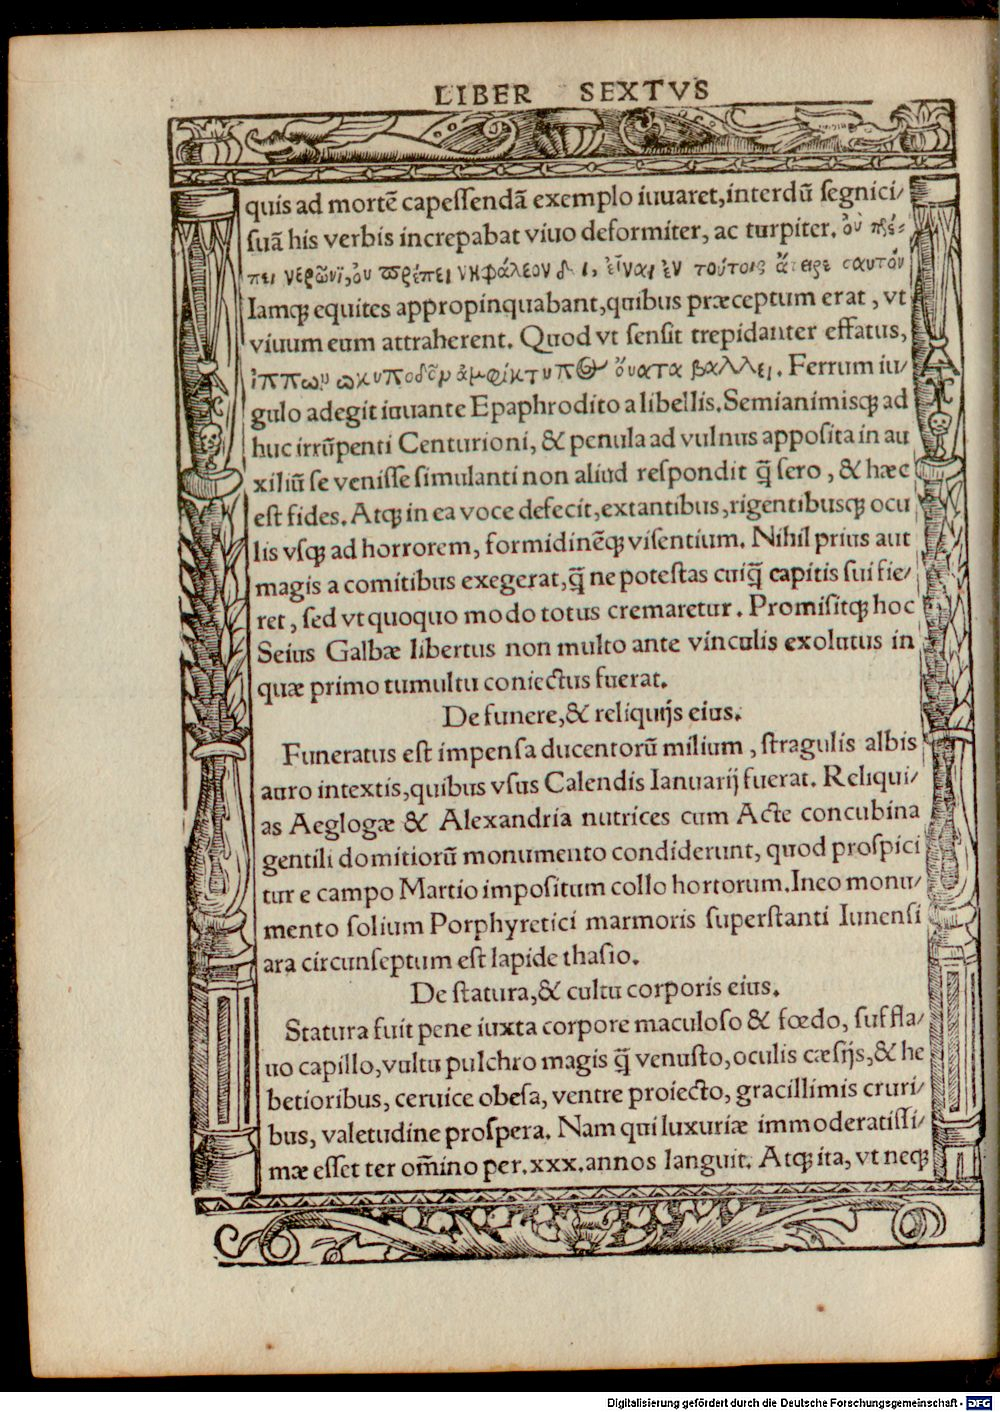 LIBER SEXTVS
quis ad mortē capessendā exemplo iuuaret, interdū segnici/
suā his verbis increpabat viuo deformiter, ac turpiter. οὐ πρέ-
πει νερῶνϊ, ὀυ πρέπει νηφάλεον δ ι, εἶναι ἐν τούτοις ἄγειρε σαυτόν
Iamq; equites appropinquabant, quibus præceptum erat, vt
viuum eum attraherent. Quod vt sensit trepidanter effatus,
ἵππων ὠκυποδῶν ἀμφίκτυπος ὄυατα βαλλει. Ferrum iu/
gulo adegit iuuante Epaphrodito a libellis. Semianimisq; ad
huc irrūpenti Centurioni, & penula ad vulnus apposita in au
xiliū se venisse simulanti non aliud respondit q̄ sero, & hæc
est fides. Atq; in ea voce defecit, extantibus, rigentibusq; ocu
lis vsq; ad horrorem, formidinēq; visentium. Nihil prius aut
magis a comitibus exegerat, q̄ ne potestas cuiq̄ capitis sui fie/
ret, sed vt quoquo modo totus cremaretur. Promisitq; hoc
Seius Galbæ libertus non multo ante vinculis exolutus in
quæ primo tumultu coniectus fuerat.
De funere, & reliquijs eius.
Funeratus est impensa ducentorū milium, stragulis albis
auro intextis, quibus vsus Calendis Ianuarij fuerat. Reliqui/
as Aeglogæ & Alexandria nutrices cum Acte concubina
gentili domitiorū monumento condiderunt, quod prospici
tur e campo Martio impositum collo hortorum. In eo monu/
mento solium Porphyretici marmoris superstanti Iunensi
ara circunseptum est lapide thasio.
De statura, & cultu corporis eius.
Statura fuit pene iuxta corpore maculoso & fœdo, suffla/
uo capillo, vultu pulchro magis q̄ venusto, oculis cæsijs, & he
betioribus, ceruice obesa, ventre proiecto, gracillimis cruri/
bus, valetudine prospera. Nam qui luxuriæ immoderatissi/
mæ esset ter om̄ino per .xxx. annos languit. Atq; ita, vt neq;
Digitalisierung gefördert durch die Deutsche Forschungsgemeinschaft - DFG